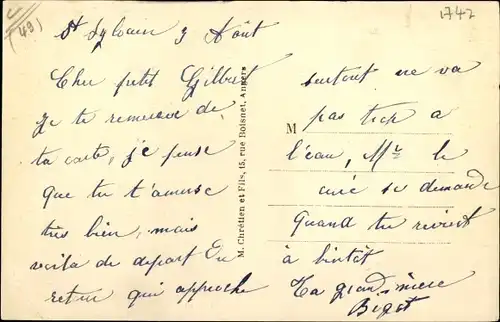 (49)
1742
St Sylvain 3 Août
Cher petit Gilbert
Je te remercie de
ta carte, je pense
que tu t'amuse
très bien, mais
voila de depart
retour qui approche
M. Chrétien et Fils, 15, rue Boisnet, Angers
surtout ne va
pas a
M
l'eau, Mr le
curé se demande
quand tu revient
à bientôt
Ta grand-mère
Bigot